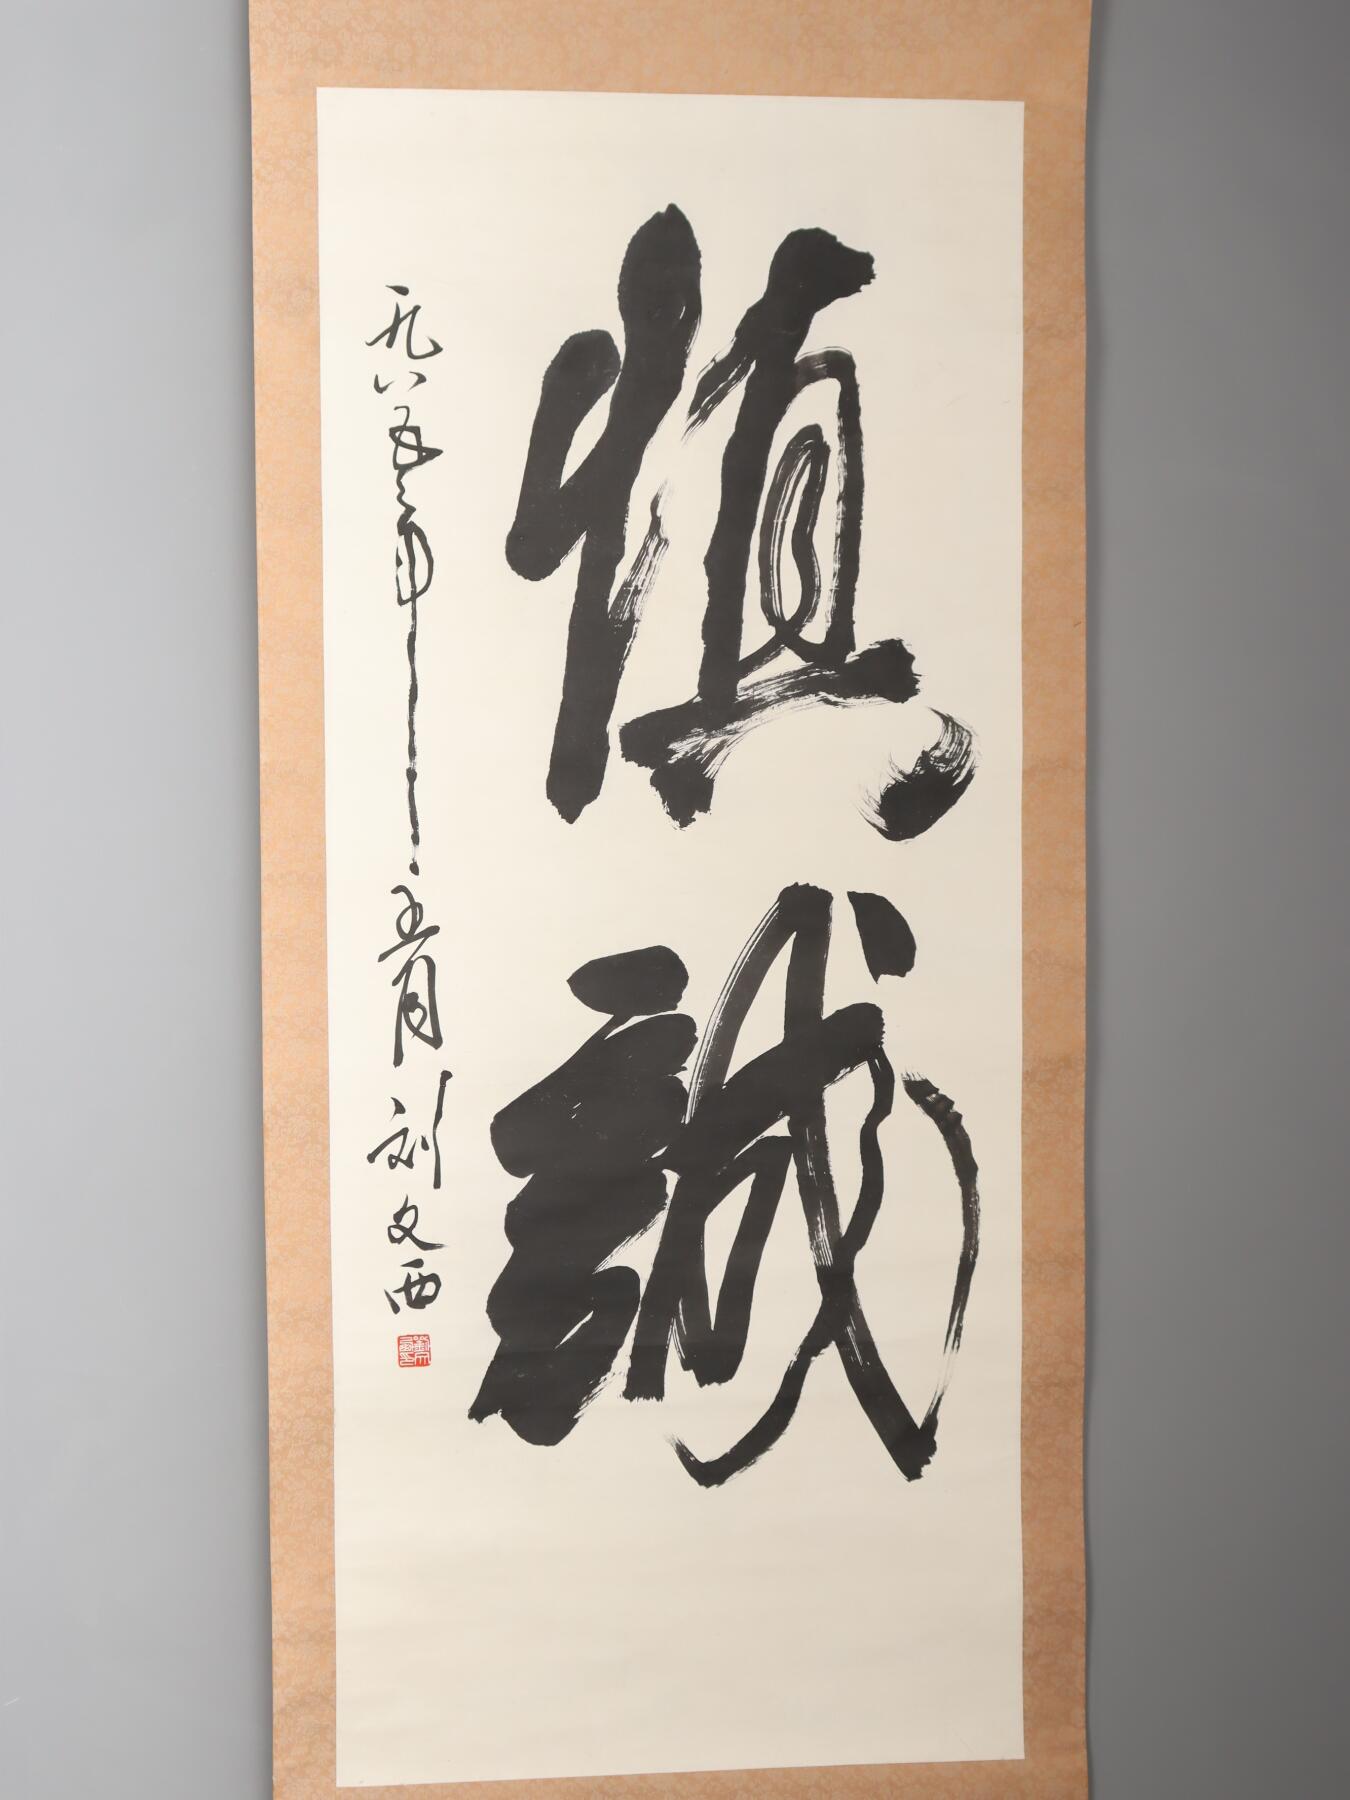 慎誠
一九八五年五月 刘文西